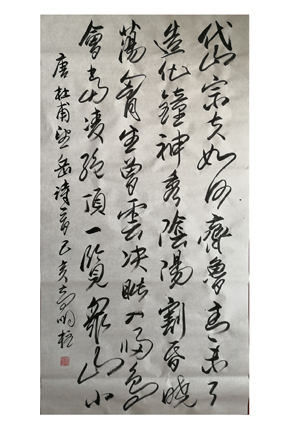 岱宗夫如何齊魯青未了
造化鐘神秀陰陽割昏曉
蕩胷生曾雲决眦入歸鳥
會當凌絕頂一覽眾山小
唐杜甫望岳詩一首己亥